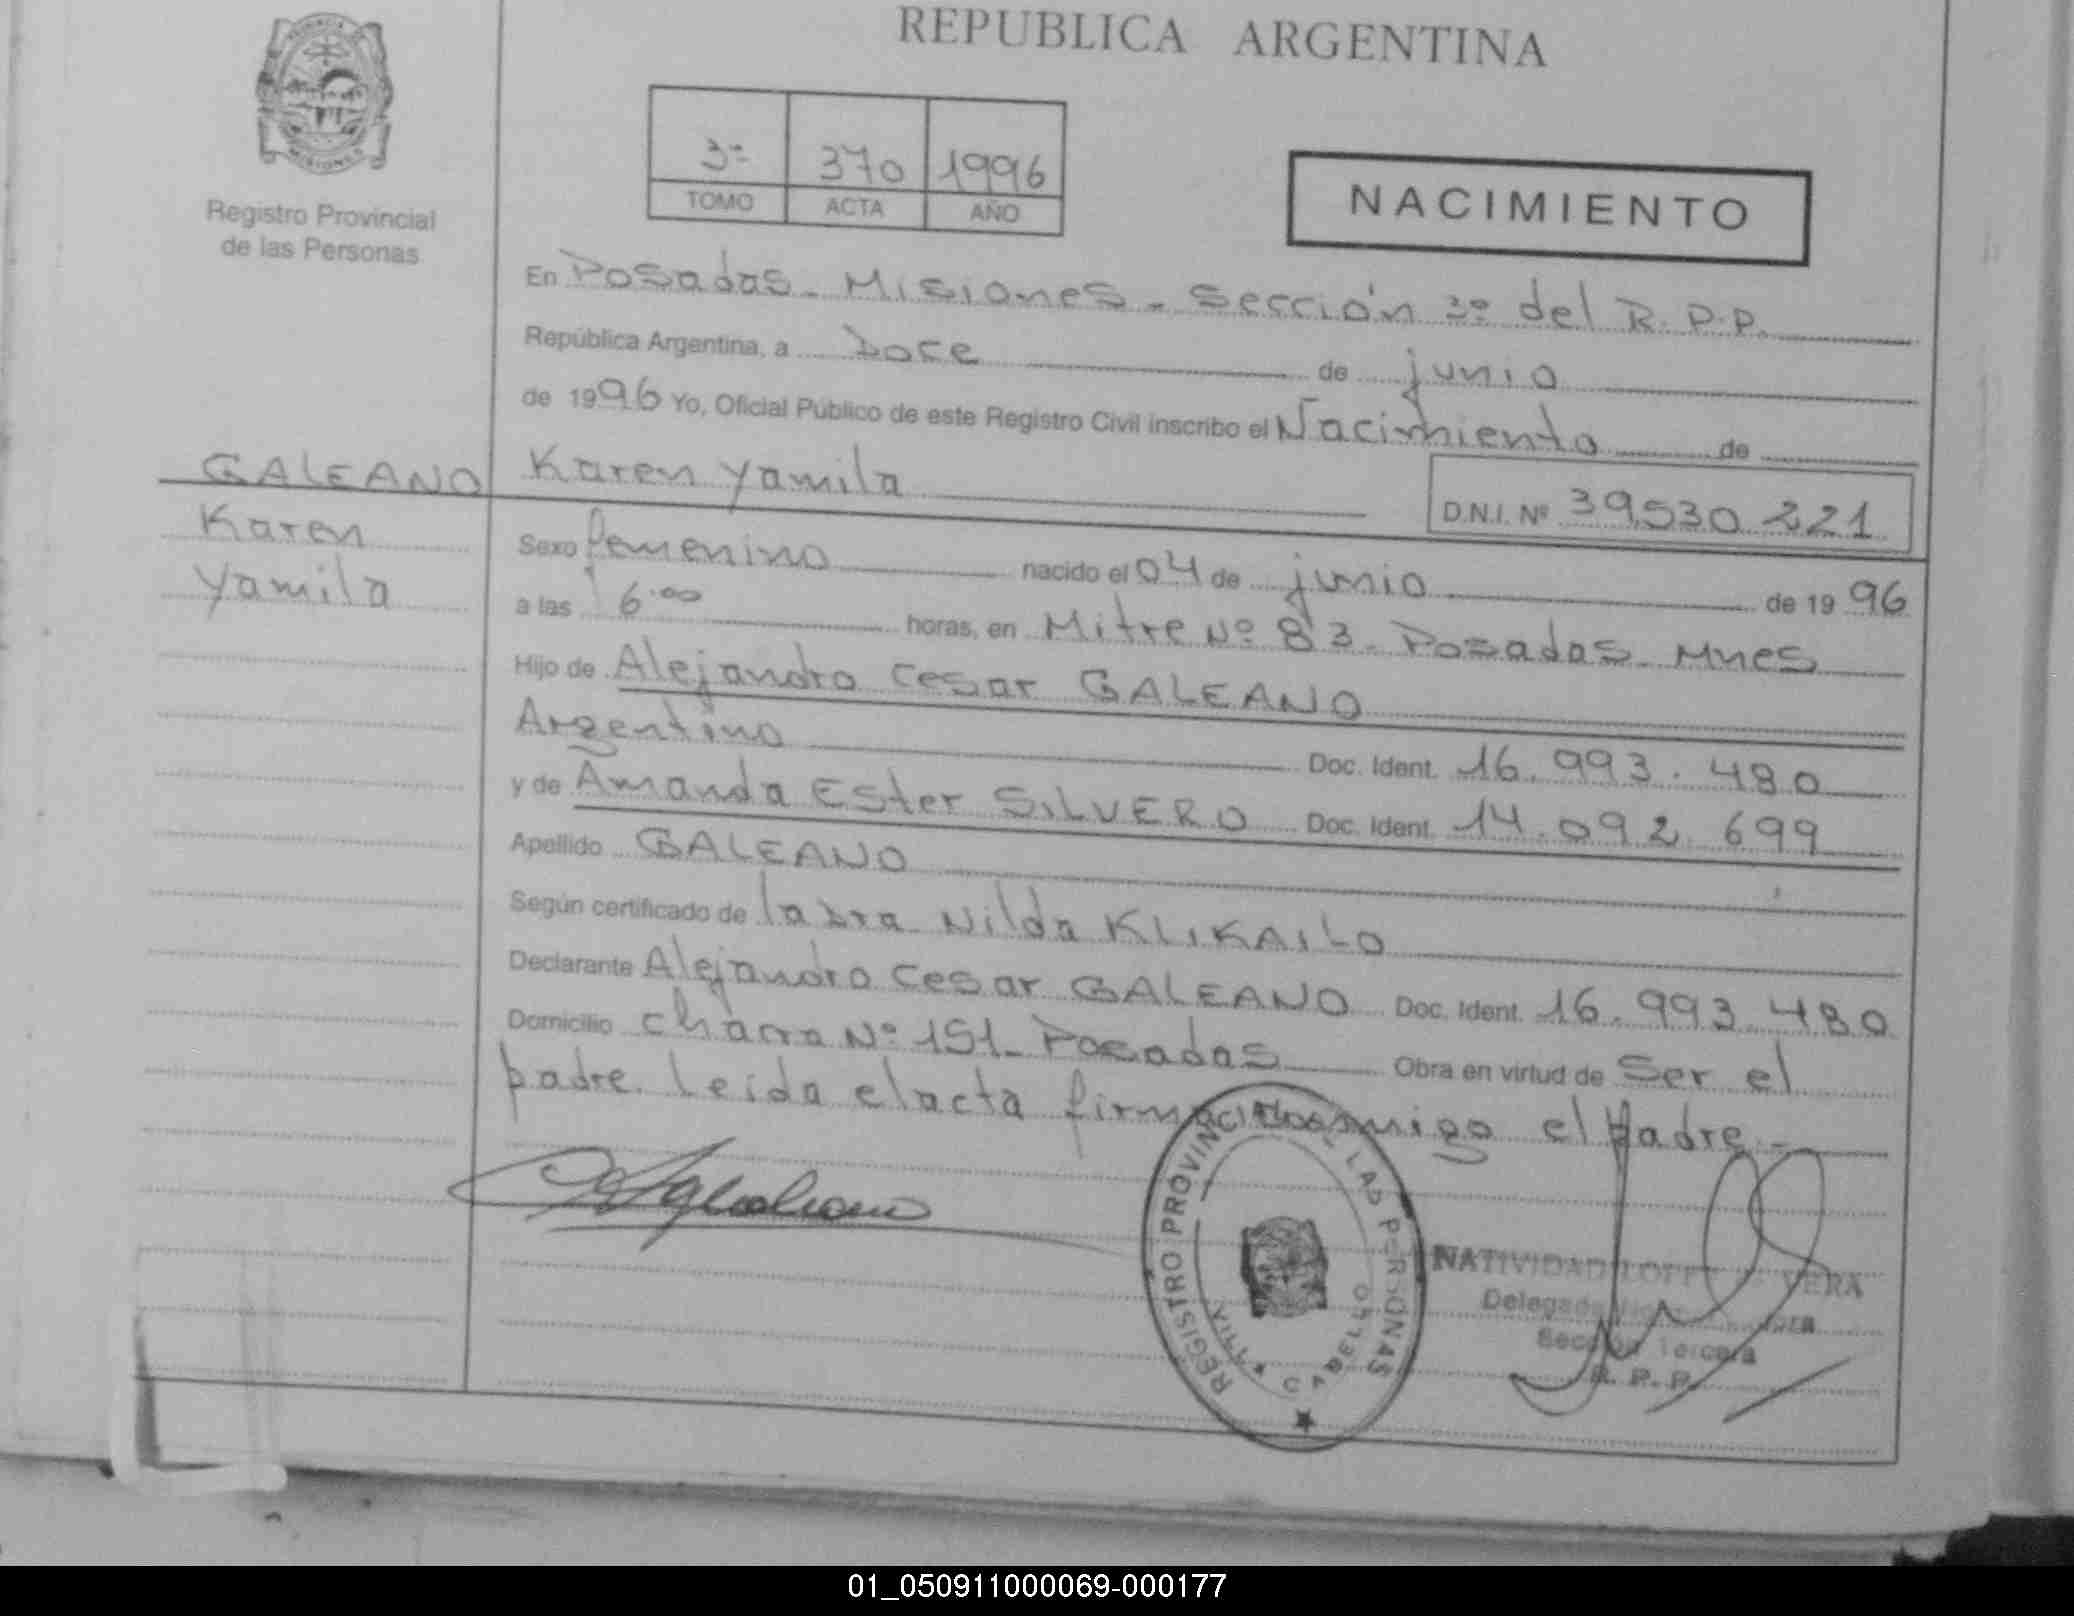 REPUBLICA ARGENTINA
MISIONES
Registro Provincial
de las Personas
3º 370 1996
TOMO ACTA AÑO
NACIMIENTO
En Posadas - Misiones - Sección 3º del R.P.P.
República Argentina, a Doce de junio
de 1996 Yo, Oficial Público de este Registro Civil inscribo el Nacimiento de
GALEANO Karen Yamila
D.N.I. Nº 39.530.221
Karen
Yamila
Sexo femenino nacido el 04 de junio de 1996
a las 16:00 horas, en Mitre Nº 83 - Posadas - Mnes
Hijo de Alejandro Cesar GALEANO
Argentino Doc. Ident. 16.993.480
y de Amanda Ester SILVERO Doc. Ident. 14.092.699
Apellido GALEANO
Según certificado de la Dra Nilda KLIKAILO
Declarante Alejandro Cesar GALEANO Doc. Ident. 16.993.480
Domicilio chacra Nº 151 - Posadas Obra en virtud de Ser el
padre. Leida el acta firma conmigo el Padre.-
REGISTRO PROVINCIAL PERSONAS
CABELLO
NATIVIDAD VERA
Sección Tercera
R. P. P.
01_050911000069-000177